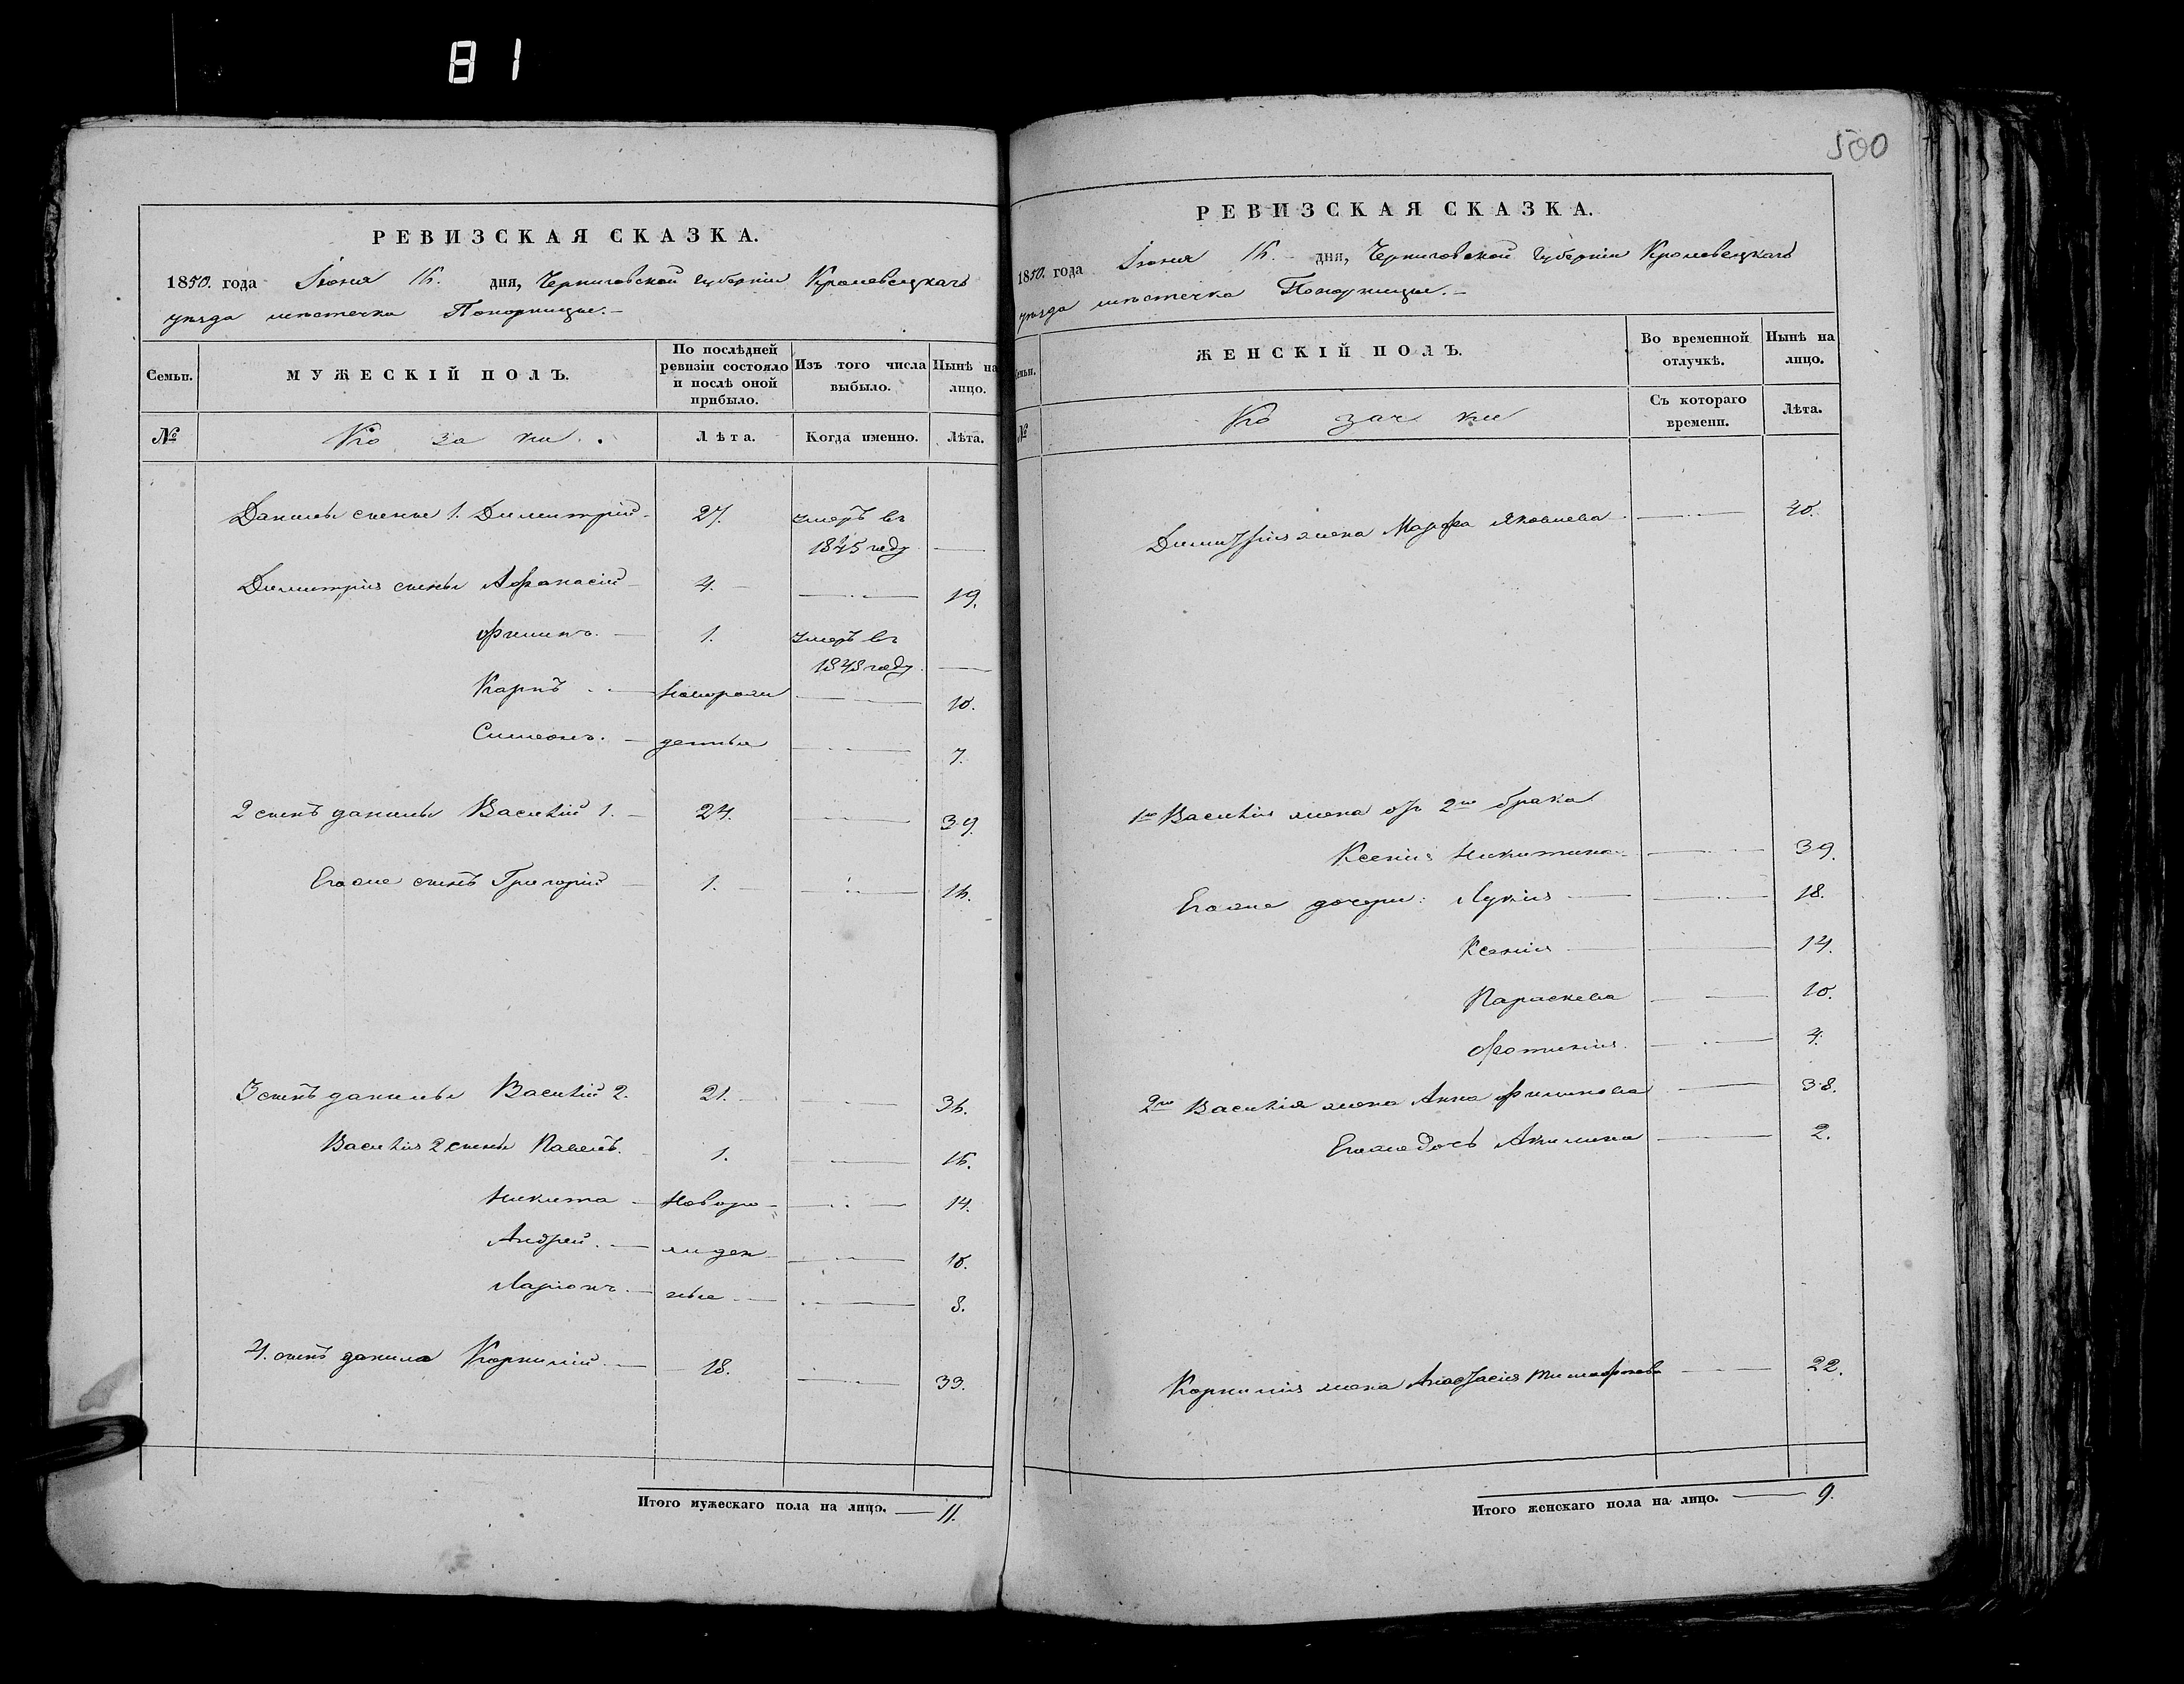 81
500
РЕВИЗСКАЯ СКАЗКА.
1850. года Іюня 16. дня, Черниговской губерніи Кролевецкаго
уѣзда мѣстечка Понорницы.
Семьи. МУЖЕСКІЙ ПОЛЪ. По послѣдней ревизіи состояло и послѣ оной прибыло. Изъ того числа выбыло. Нынѣ на лицо.
№ Лѣта. Когда именно. Лѣта.
Данилы сыны 1. Димитрій 27. умеръ въ
1845 году
Димитрія сыны Афанасій 4. 19.
Филипъ. 1. умеръ въ
1848 году.
Карпъ новорож 10.
Симеонъ. денные 7.
2 сынъ данилы Василій 1. 24. 39.
Егоже сынъ Григорій 1. 16.
3 сынъ данилы Василій 2. 21. 36.
Василія 2 сыны Павелъ. 1. 16.
Никита Новоро 14.
Андрей. жден 10.
Ларіонъ ные 8.
4. сынъ данила Корнилій. 18. 33.
Итого мужескаго пола на лицо. 11.
РЕВИЗСКАЯ СКАЗКА.
1850. года Іюня 16. дня, Черниговской губерніи Кролевецкаго
уѣзда мѣстечка Понорницы.
Семьи. ЖЕНСКІЙ ПОЛЪ. Во временной отлучкѣ. Нынѣ на лицо.
№ Съ котораго времени. Лѣта.
Димитрія жена Марфа Яковлева 40.
1го Василія жена отъ 2го брака
Ксенія Никитина 39.
Егоже дочери: Лукія 18.
Ксенія 14.
Параскева 10.
Фотинія. 4.
2го Василія жена Анна Филипова 38.
Егоже дочь Акилина 2.
Корнилія жена Анастасія Тимофѣева 22.
Итого женскаго пола на лицо. 9.